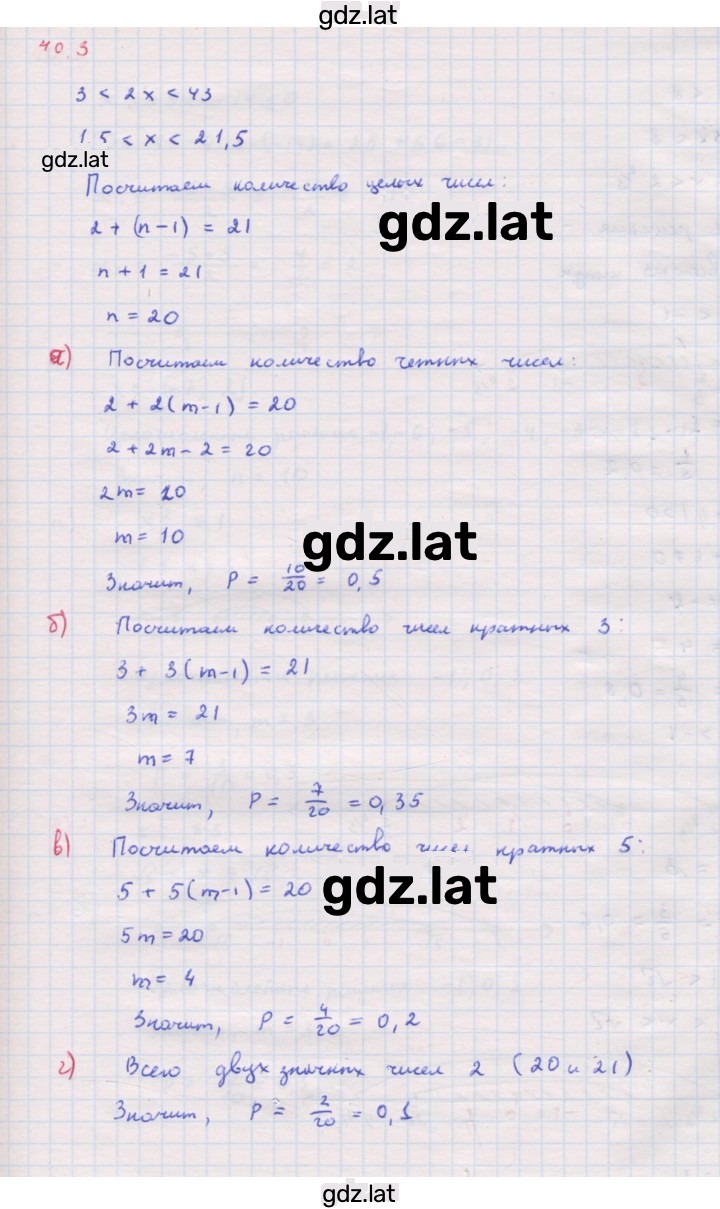 gdz.lat
40.3
3 < 2x < 43
1,5 < x < 21,5
gdz.lat
Посчитаем количество целых чисел:
2 + (n-1) = 21
gdz.lat
n + 1 = 21
n = 20
а) Посчитаем количество четных чисел:
2 + 2(m-1) = 20
2 + 2m - 2 = 20
2m = 20
m = 10
gdz.lat
Значит, P = 10/20 = 0,5
б) Посчитаем количество чисел кратных 3:
3 + 3(m-1) = 21
3m = 21
m = 7
Значит, P = 7/20 = 0,35
в) Посчитаем количество чисел кратных 5:
5 + 5(m-1) = 20
gdz.lat
5m = 20
m = 4
Значит, P = 4/20 = 0,2
г) Всего двухзначных чисел 2 (20 и 21)
Значит, P = 2/20 = 0,1
gdz.lat